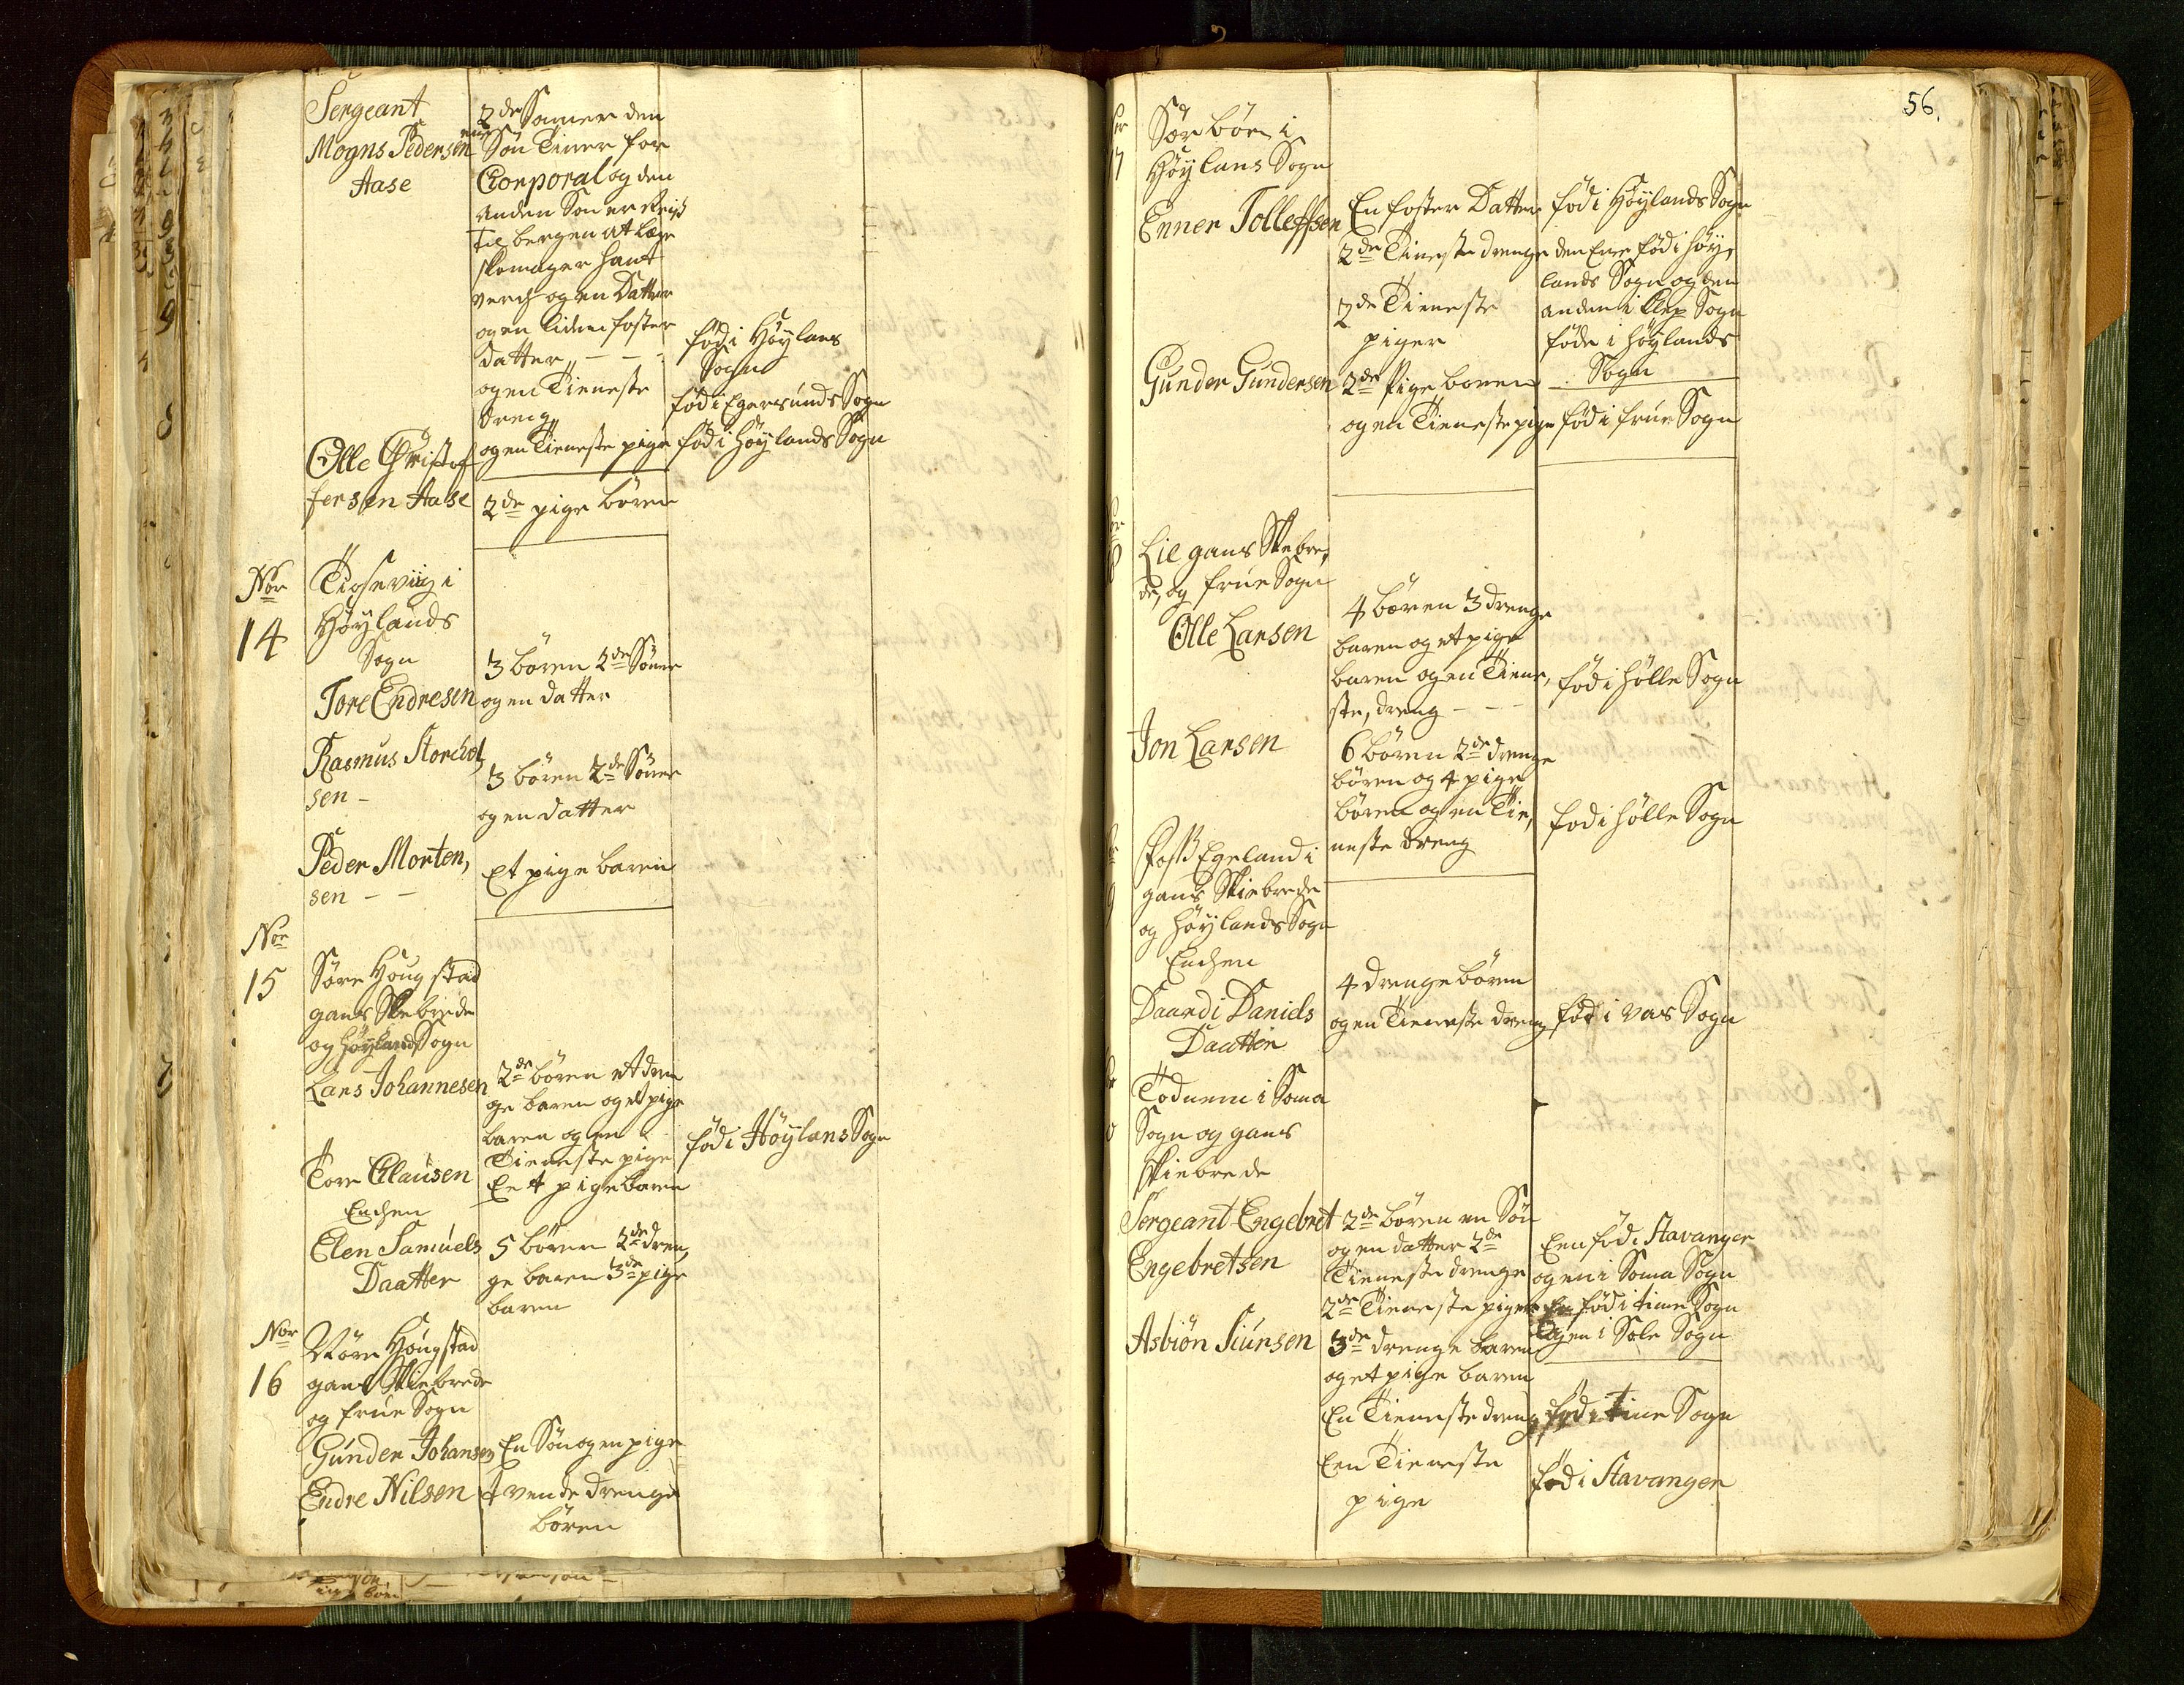 Sergeant
Mogns Pedersen
Aase
2de Sønner den
ene Søn Tiener for
Corporal og den
anden Søn er Reist
til bergen at lære
skomager hant
verch og en Datter
og en liden foster
datter
og en Tieneste
dreng
og en Tieneste pige
fød i Høylans
Sogn
fød i Egersunds Sogn
fød i Høylands Sogn
Olle Christof
fersen Aase
2de pige børen
Nor
14
i
Høylands
Sogn
Tore Endresen
3 børen 2de Sønner
og en datter
Rasmus
sen -
3 børen 2de Sønner
og en datter
Peder Morten,
sen - -
Et pige baren
Nor
15
Søre Houg stad
gans Skibrede
og Høyland Sogn
Lars Johannesen
2de børen et dren
ge baren og et pige
baren og en
Tieneste pige
fød i Høylans Sogn
Tore Clausen
Eet pige baren
Enchen
Elen Samuels
Daatter
5 børen 2de dren
ge baren 3de pige
baren
Nor
16
Nøre Hougstad
gans Skiebrede
og frue Sogn
Gunder Johansen
En Søn og en pige
Endre Nilsen
tvende drenge
børen
56.
Sør bøe i
Høylans Sogn
Enner Tolleffsen
En foster Datter
fød i Høylands Sogn
2de Tieneste drenge
den Ene fød i Høy,
lands Sogn og den
anden i Klep Sogn
2de Tieneste
piger
føde i Høylands
Sogn
Gunder Gundersen
2de Pige børen
og en Tieneste pige
fød i frue Sogn
Lil gans Skebre,
de, og frue Sogn
Olle Larsen
4 børen 3 drenge
baren og et pige
baren og en Tiene,
ste, dreng - - -
fød i Hølle Sogn
Jon Larsen
6 børen 2de drenge
børen og 4 pige
børen og en Tie,
neste dreng
fød i Hølle Sogn
Foss Egeland i
gans Skiebrede
og Høylands Sogn
Enchen
Daardi Daniels
Daatter
4 drenge børen
og en Tieneste dreng
fød i vas Sogn
Todnem i Soma
Sogn og gans
Skiebrede
Sergeant Engebret
Engebretsen
2de børen en Søn
og en datter 2de
Tieneste drenge
2de Tieneste piger
Een fød i Stavanger
og en i Soma Sogn
En fød i time Sogn
og en i Sole Sogn
Asbiön Siursen
3de drenge baren
og et pige baren
En Tieneste dreng
fød i time Sogn
Een Tieneste
pige
fød i Stavanger